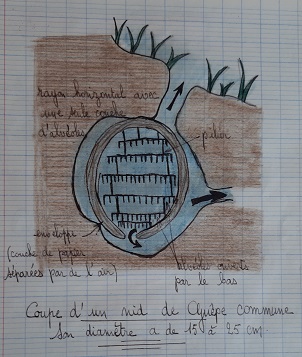 rayon horizontal avec
une seule couche
d'alvéoles
pilier
enveloppe
(couche de papier
séparées par de l'air)
alvéoles ouverts
par le bas
Coupe d'un nid de Guêpe commune
Son diamètre a de 15 à 25 cm